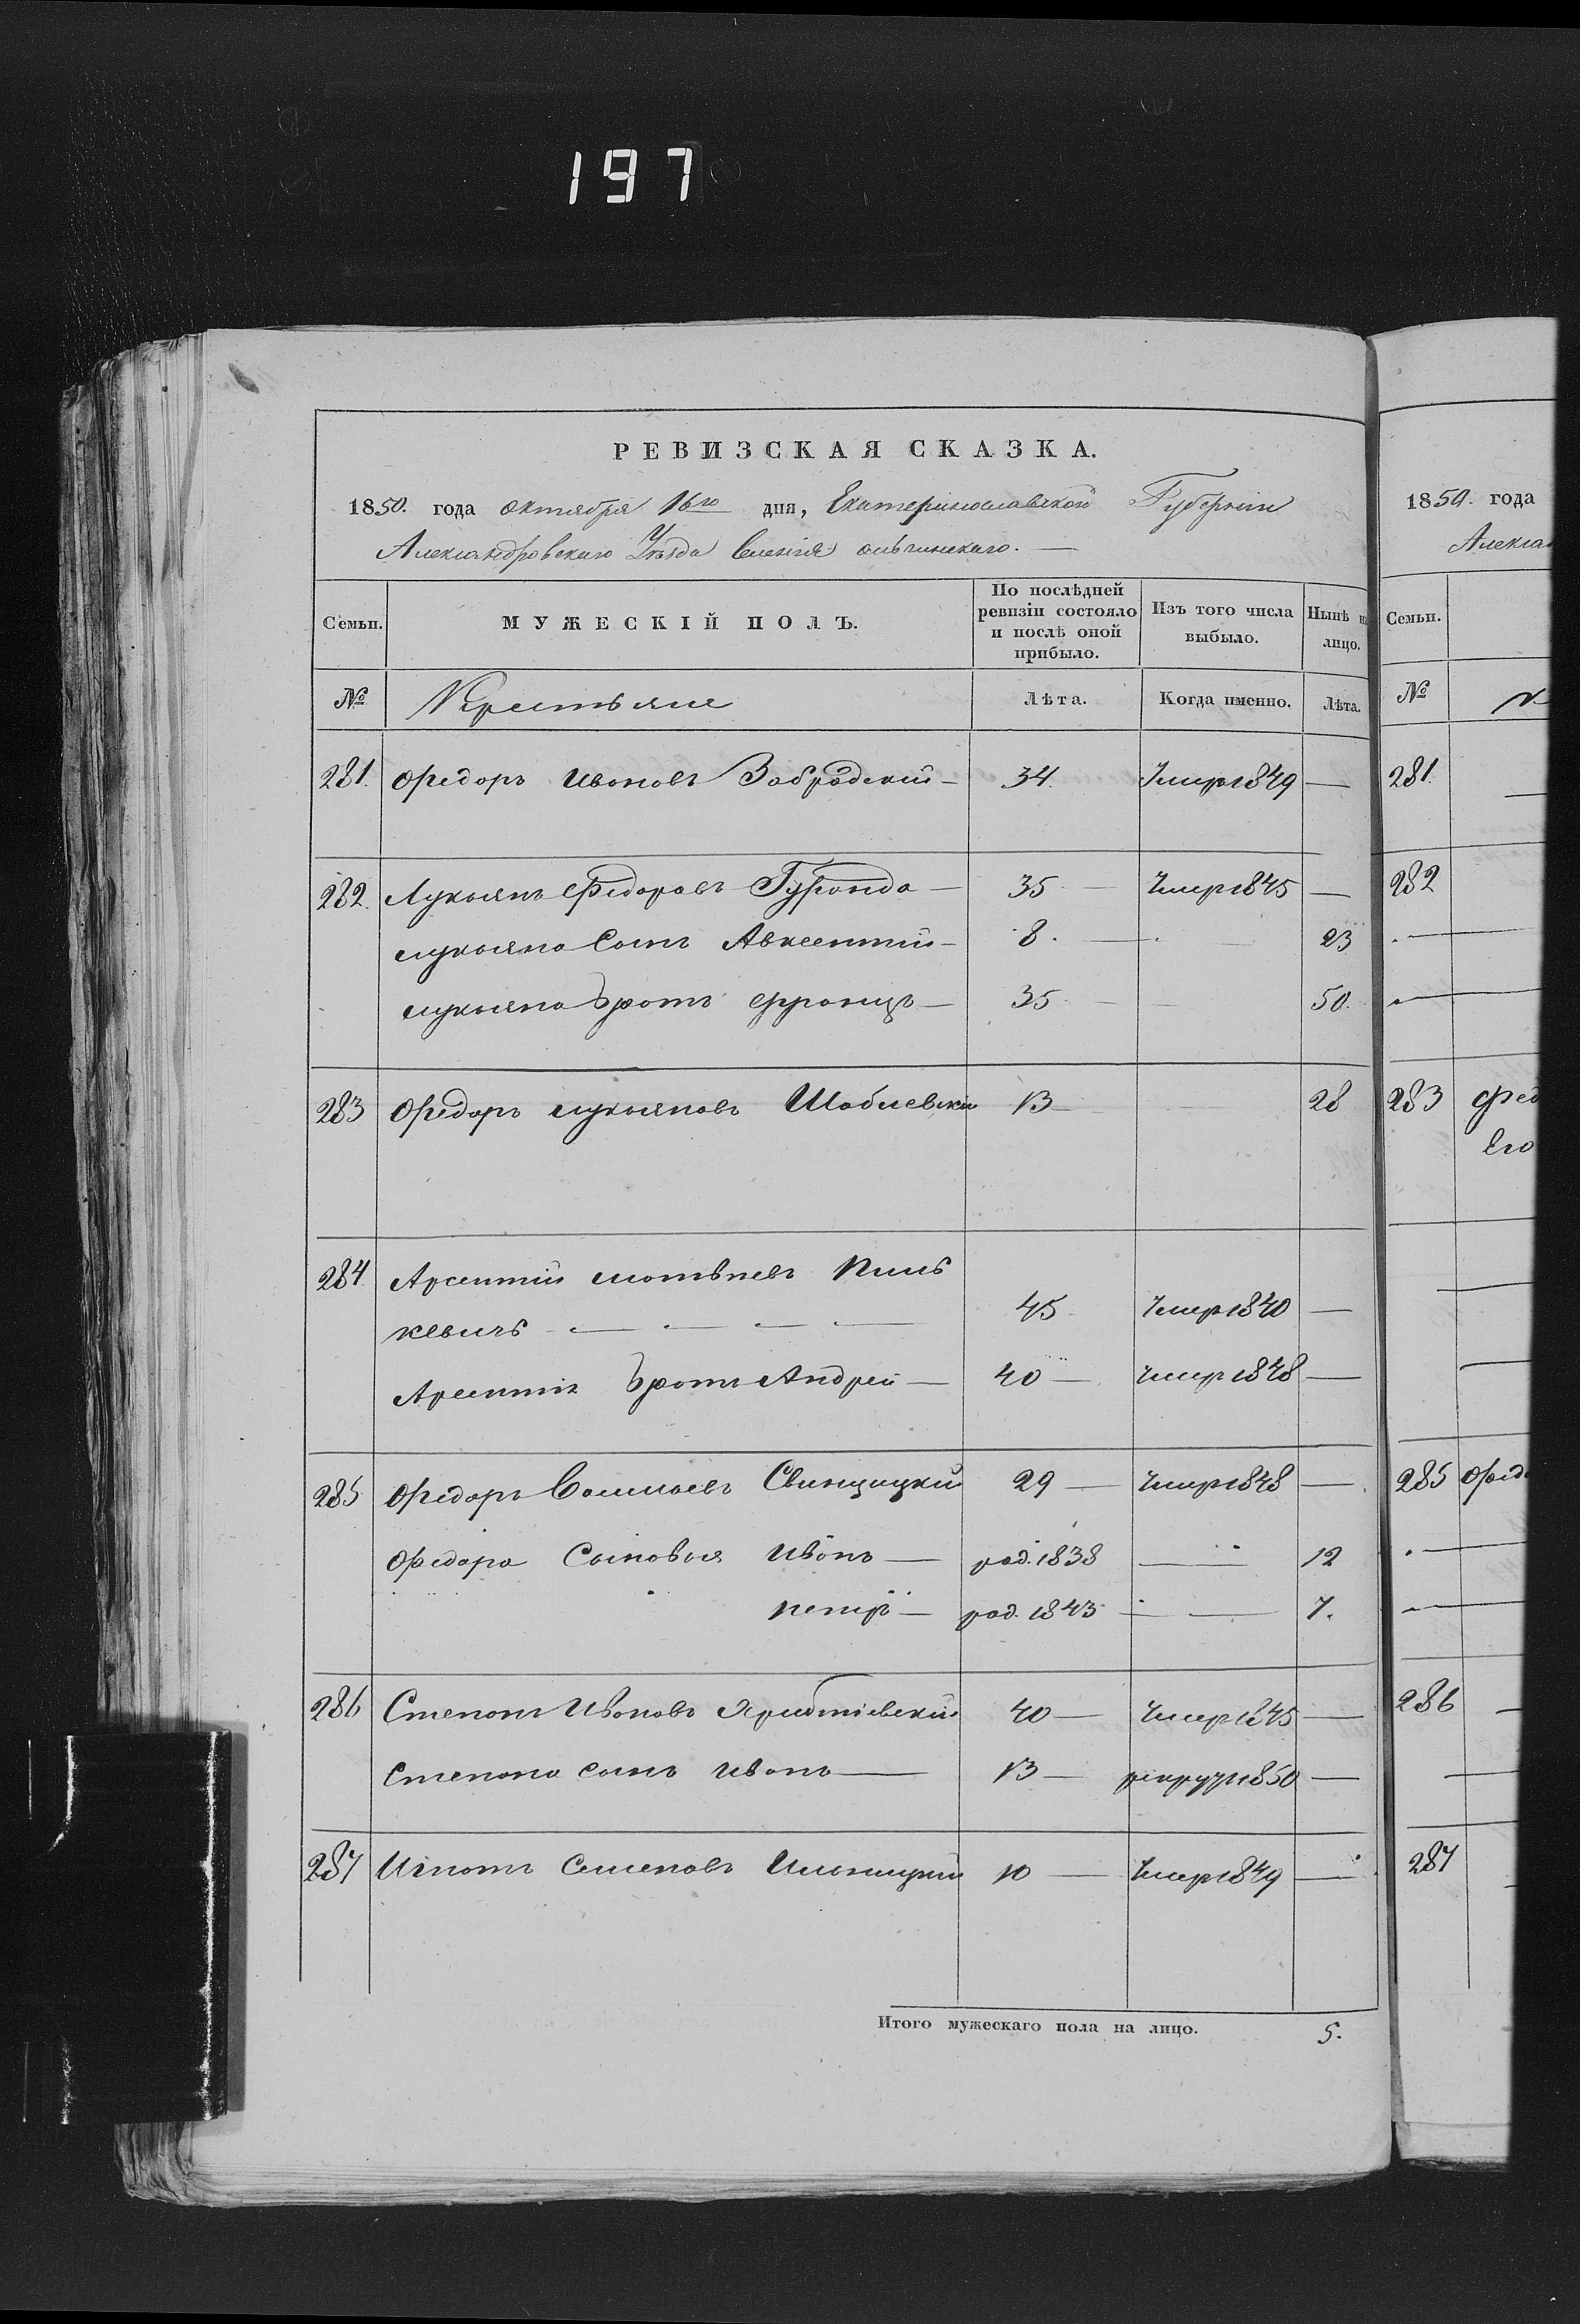 197
РЕВИЗСКАЯ СКАЗКА.
1850. года октября 16го дня, Екатеринославской Губерніи
Александровскаго Уѣзда Селенія ольгинскаго.
Семьи.
МУЖЕСКІЙ ПОЛЪ.
По послѣдней ревизіи состояло и послѣ оной прибыло.
Изъ того числа выбыло.
Нынѣ на лицо.
№ Крестьяне Лѣта. Когда именно. Лѣта.
281. Федоръ Ивановъ Забродскій — 34. Умер 1849 —
282. Лукьянъ Федоровъ — 35 — Умер 1845 —
лукьяна Сынъ Авксентій — 8. — 23
лукьяна Братъ Францъ — 35 — 50.
283 Федоръ лукьяновъ Шаблевскій 13 — 28
284. Арсентій матвѣевъ
кевичъ — — — — 45 Умер 1840 —
Арсентія Братъ Андрей — 40 — Умер 1848 —
285 Федоръ Свинцицкій 29 — Умер 1848 —
Федора Сыновья Иванъ — род. 1838 — 12
петръ — род. 1843 — — 7.
286 Степанъ Ивановъ 40 — Умер 1845 —
Степана сынъ Иванъ — 13 — рекрут 1850 —
287 Игнатъ Семеновъ Ильницкій 10 — Умер 1849 —
Итого мужескаго пола на лицо. 5.
1850. года
Алексан
Семьи.
№
281.
282
283 Фед
Его
285 Федо
286
287